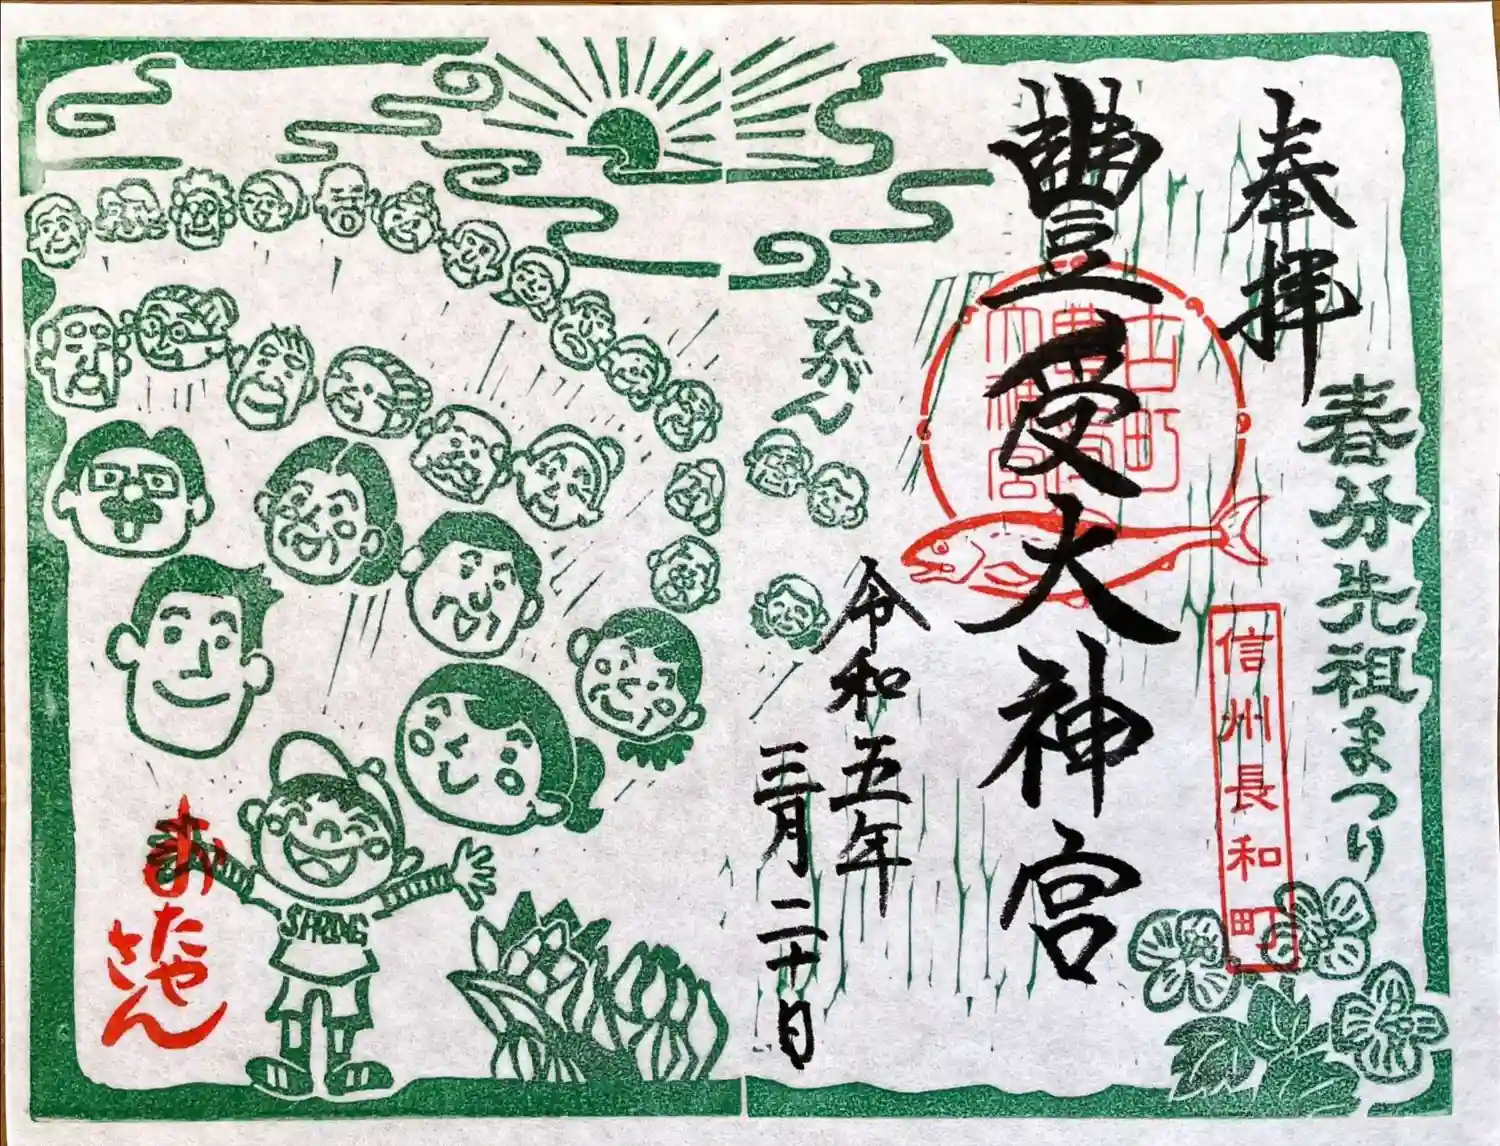 奉拝
春分先祖まつり
信州長和町
豐受大神宮
古町
豊受
大神宮
おひがん
令和五年
三月二十日
おたやさん
SPRING